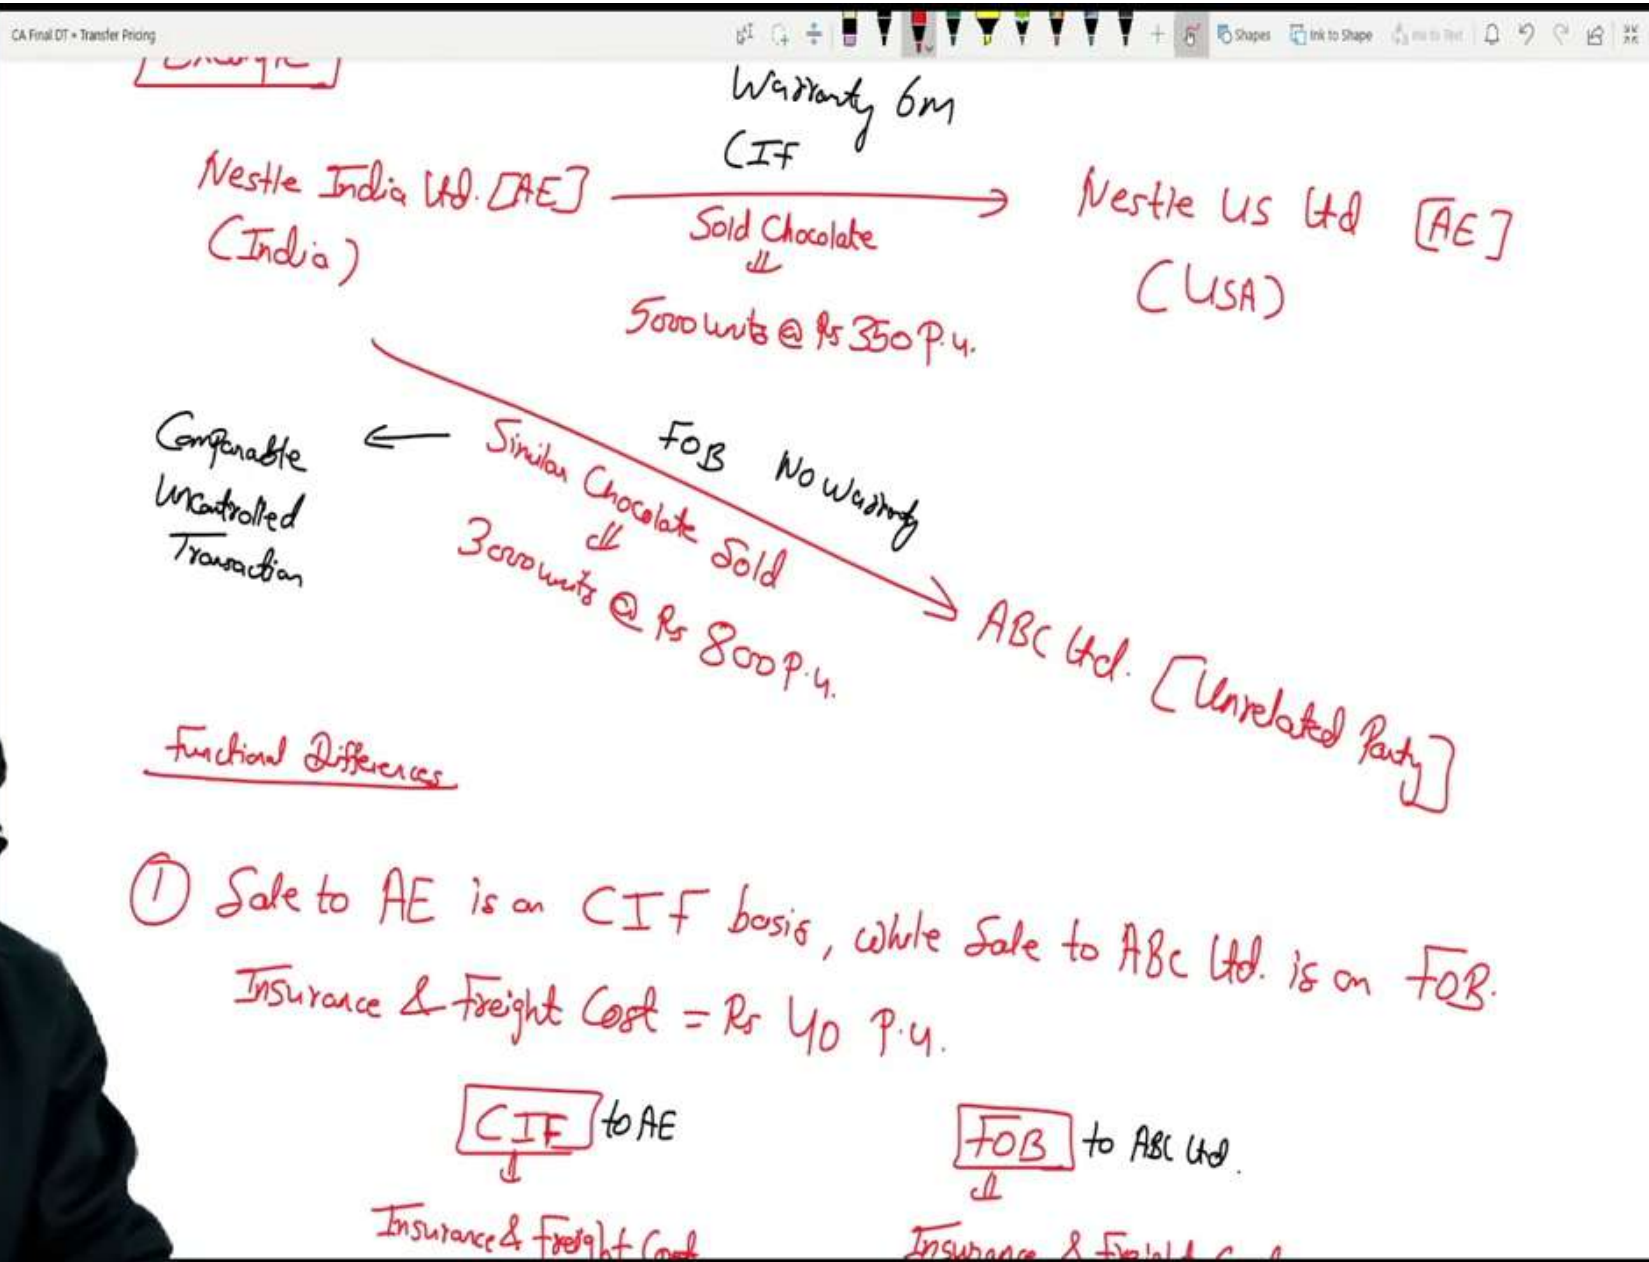 CA Final DT - Transfer Pricing
Shapes
Ink to Shape
Ink to Text
Example
Warranty 6m
CIF
Nestle India Ltd. [AE]
(India)
Sold Chocolate
5000 units @ Rs 350 P.u.
Nestle US Ltd [AE]
(USA)
Comparable
Uncontrolled
Transaction
FOB No Warranty
Similar Chocolate Sold
3000 units @ Rs 800 P.u.
ABC Ltd. [Unrelated Party]
Functional Differences
① Sale to AE is on CIF basis, while Sale to ABC Ltd. is on FOB.
Insurance & Freight Cost = Rs 40 P.u.
CIF to AE
FOB to ABC Ltd.
Insurance & Freight Cost
Insurance & Freight